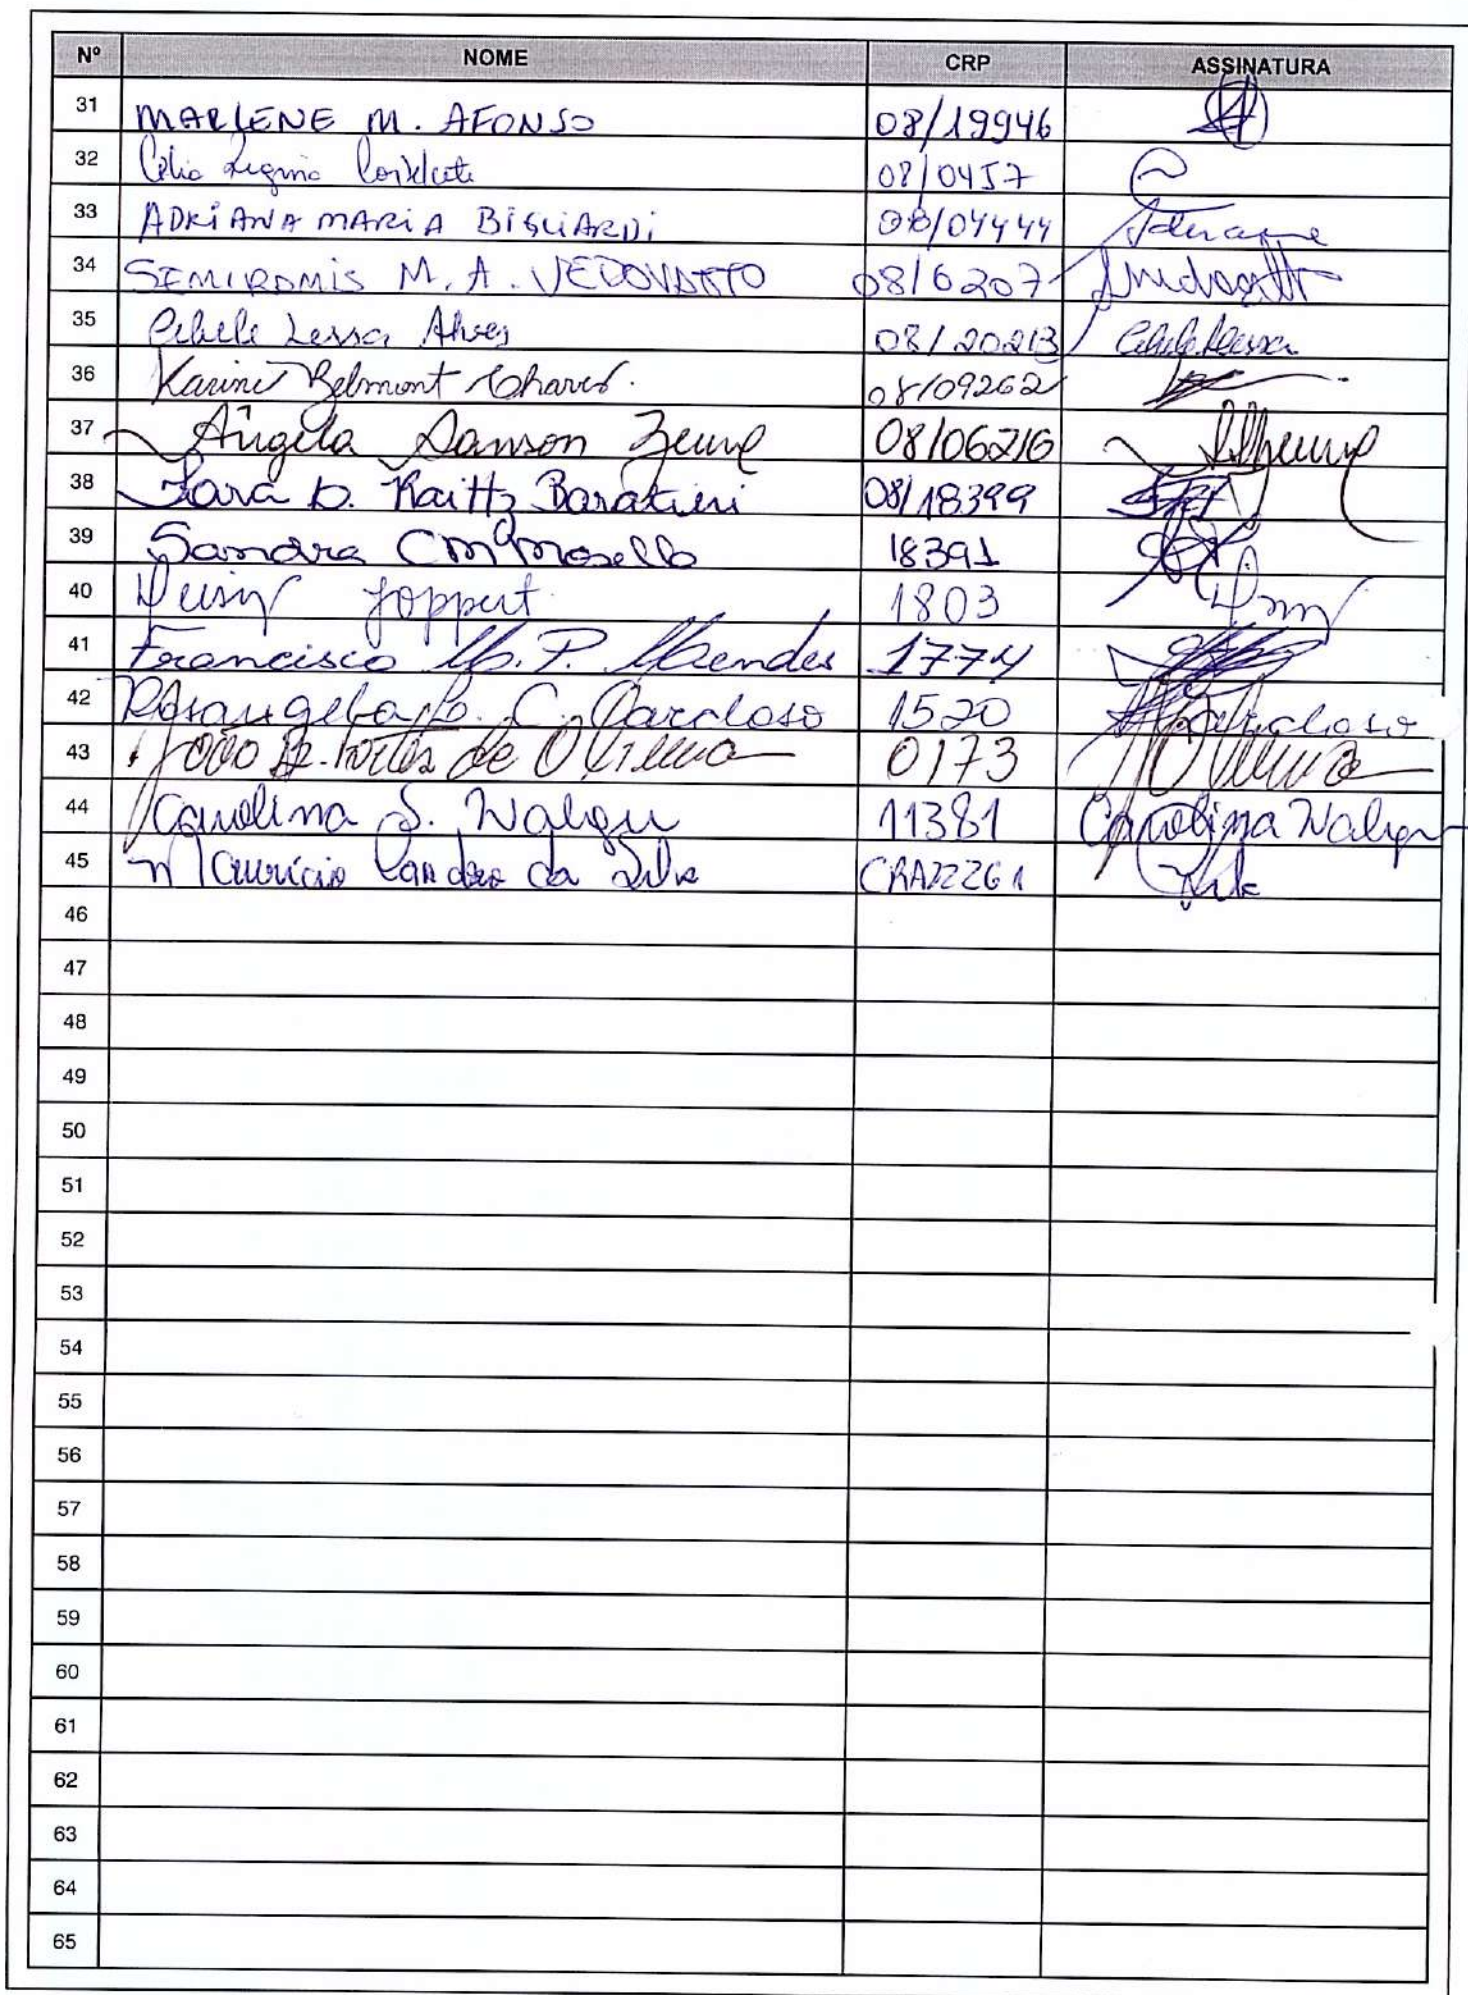 Nº NOME CRP ASSINATURA
31 MARLENE M. AFONSO 08/19946
32 Celia Regina 08/0457
33 ADRIANA MARIA BIGLIARDI 08/04444
34 SEMIRAMIS M. A. VEDOVATTO 08/6207
35 Cibele Lessa Alves 08/20213
36 Karine Belmont Chaves. 08/09262
37 Angela Sanson Zewe 08/06216
38 D. Raittz Baratieri 08/18399
39 Sandra 18391
40 Deisy Joppert 1803
41 Francisco M. P. Mendes 1774
42 Rosangela C. Cardoso 1520
43 João B. Fortes de Oliveira 0173
44 Carolina S. Walger 11381 Carolina Walger
45 Mauricio da Silva
46
47
48
49
50
51
52
53
54
55
56
57
58
59
60
61
62
63
64
65